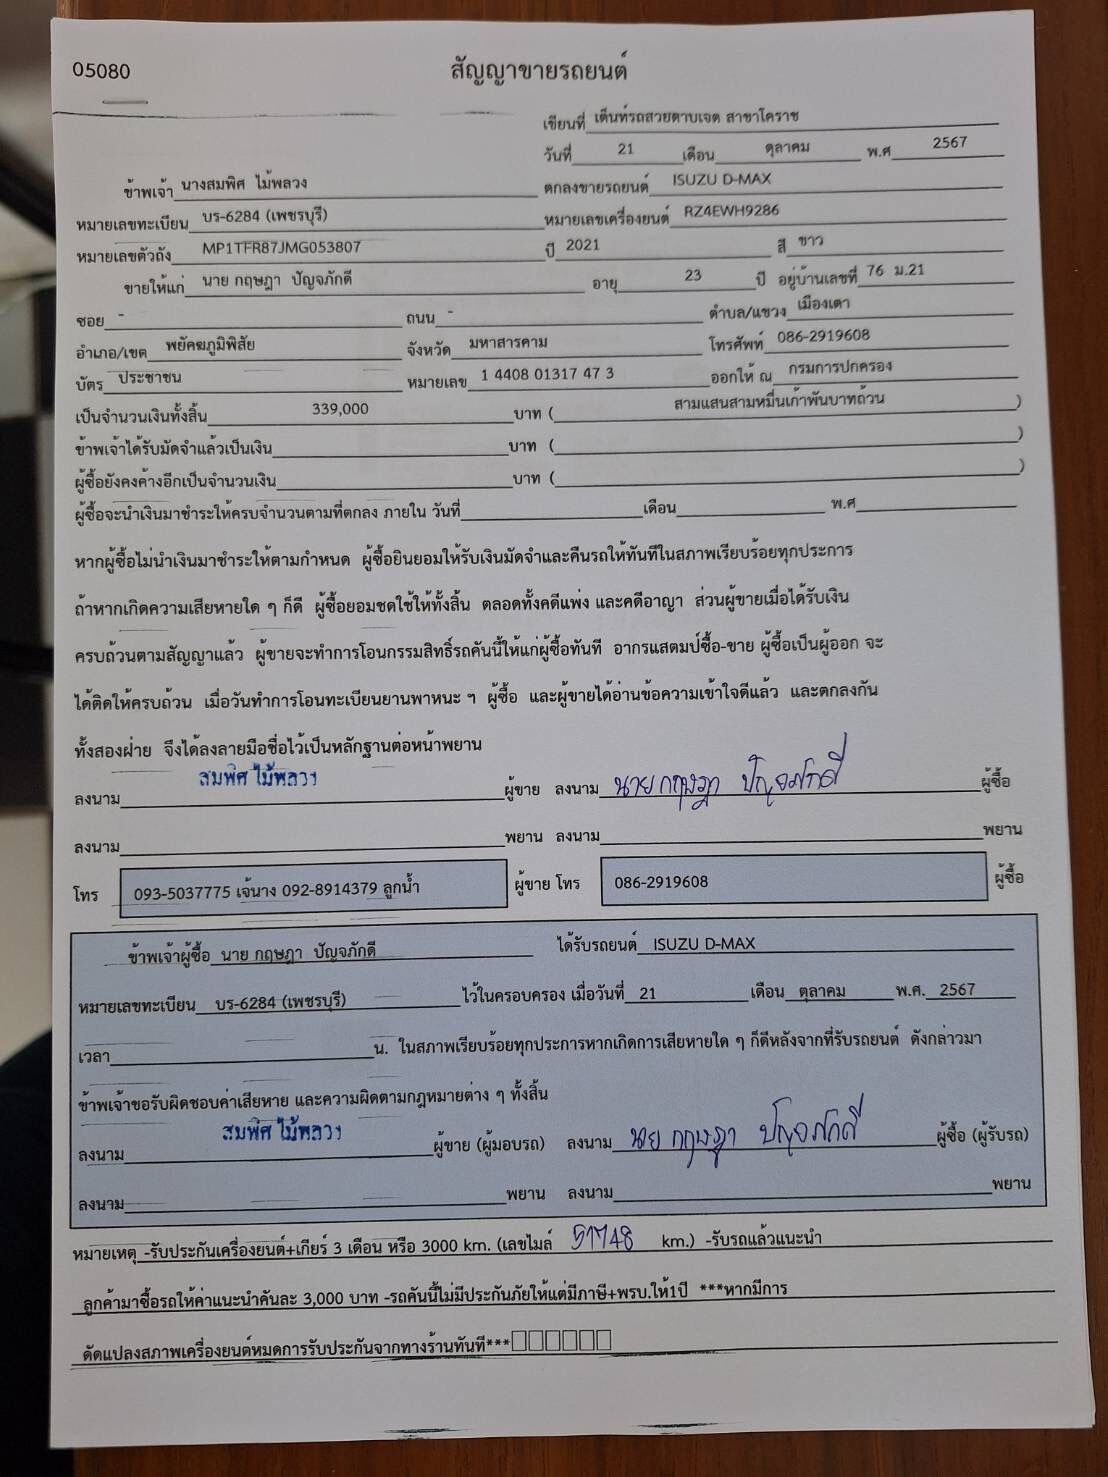 05080
สัญญาขายรถยนต์
เขียนที่ เต็นท์รถสวยดาบเจต สาขาโคราช
วันที่ 21 เดือน ตุลาคม พ.ศ 2567
ข้าพเจ้า นางสมพิศ ไม้พลวง ตกลงขายรถยนต์ ISUZU D-MAX
หมายเลขทะเบียน บร-6284 (เพชรบุรี) หมายเลขเครื่องยนต์ RZ4EWH9286
หมายเลขตัวถัง MP1TFR87JMG053807 ปี 2021 สี ขาว
ขายให้แก่ นาย กฤษฎา ปัญจภักดี อายุ 23 ปี อยู่บ้านเลขที่ 76 ม.21
ซอย - ถนน - ตำบล/แขวง เมืองเตา
อำเภอ/เขต พยัคฆภูมิพิสัย จังหวัด มหาสารคาม โทรศัพท์ 086-2919608
บัตร ประชาชน หมายเลข 1 4408 01317 47 3 ออกให้ ณ กรมการปกครอง
เป็นจำนวนเงินทั้งสิ้น 339,000 บาท ( สามแสนสามหมื่นเก้าพันบาทถ้วน )
ข้าพเจ้าได้รับมัดจำแล้วเป็นเงิน บาท ( )
ผู้ซื้อยังคงค้างอีกเป็นจำนวนเงิน บาท ( )
ผู้ซื้อจะนำเงินมาชำระให้ครบจำนวนตามที่ตกลง ภายใน วันที่ เดือน พ.ศ
หากผู้ซื้อไม่นำเงินมาชำระให้ตามกำหนด ผู้ซื้อยินยอมให้รับเงินมัดจำและคืนรถให้ทันทีในสภาพเรียบร้อยทุกประการ
ถ้าหากเกิดความเสียหายใด ๆ ก็ดี ผู้ซื้อยอมชดใช้ให้ทั้งสิ้น ตลอดทั้งคดีแพ่ง และคดีอาญา ส่วนผู้ขายเมื่อได้รับเงิน
ครบถ้วนตามสัญญาแล้ว ผู้ขายจะทำการโอนกรรมสิทธิ์รถคันนี้ให้แก่ผู้ซื้อทันที อากรแสตมป์ซื้อ-ขาย ผู้ซื้อเป็นผู้ออก จะ
ได้ติดให้ครบถ้วน เมื่อวันทำการโอนทะเบียนยานพาหนะ ฯ ผู้ซื้อ และผู้ขายได้อ่านข้อความเข้าใจดีแล้ว และตกลงกัน
ทั้งสองฝ่าย จึงได้ลงลายมือชื่อไว้เป็นหลักฐานต่อหน้าพยาน
ลงนาม สมพิศ ไม้พลวง ผู้ขาย ลงนาม นาย กฤษฎา ปัญจภักดี ผู้ซื้อ
ลงนาม พยาน ลงนาม พยาน
โทร 093-5037775 เจ้นาง 092-8914379 ลูกน้ำ ผู้ขาย โทร 086-2919608 ผู้ซื้อ
ข้าพเจ้าผู้ซื้อ นาย กฤษฎา ปัญจภักดี ได้รับรถยนต์ ISUZU D-MAX
หมายเลขทะเบียน บร-6284 (เพชรบุรี) ไว้ในครอบครอง เมื่อวันที่ 21 เดือน ตุลาคม พ.ศ. 2567
เวลา น. ในสภาพเรียบร้อยทุกประการหากเกิดการเสียหายใด ๆ ก็ดีหลังจากที่รับรถยนต์ ดังกล่าวมา
ข้าพเจ้าขอรับผิดชอบค่าเสียหาย และความผิดตามกฎหมายต่าง ๆ ทั้งสิ้น
ลงนาม สมพิศ ไม้พลวง ผู้ขาย (ผู้มอบรถ) ลงนาม นาย กฤษฎา ปัญจภักดี ผู้ซื้อ (ผู้รับรถ)
ลงนาม พยาน ลงนาม พยาน
หมายเหตุ -รับประกันเครื่องยนต์+เกียร์ 3 เดือน หรือ 3000 km. (เลขไมล์ 51748 km.) -รับรถแล้วแนะนำ
ลูกค้ามาซื้อรถให้ค่าแนะนำคันละ 3,000 บาท -รถคันนี้ไม่มีประกันภัยให้แต่มีภาษี+พรบ.ให้1ปี ***หากมีการ
ดัดแปลงสภาพเครื่องยนต์หมดการรับประกันจากทางร้านทันที***□□□□□□